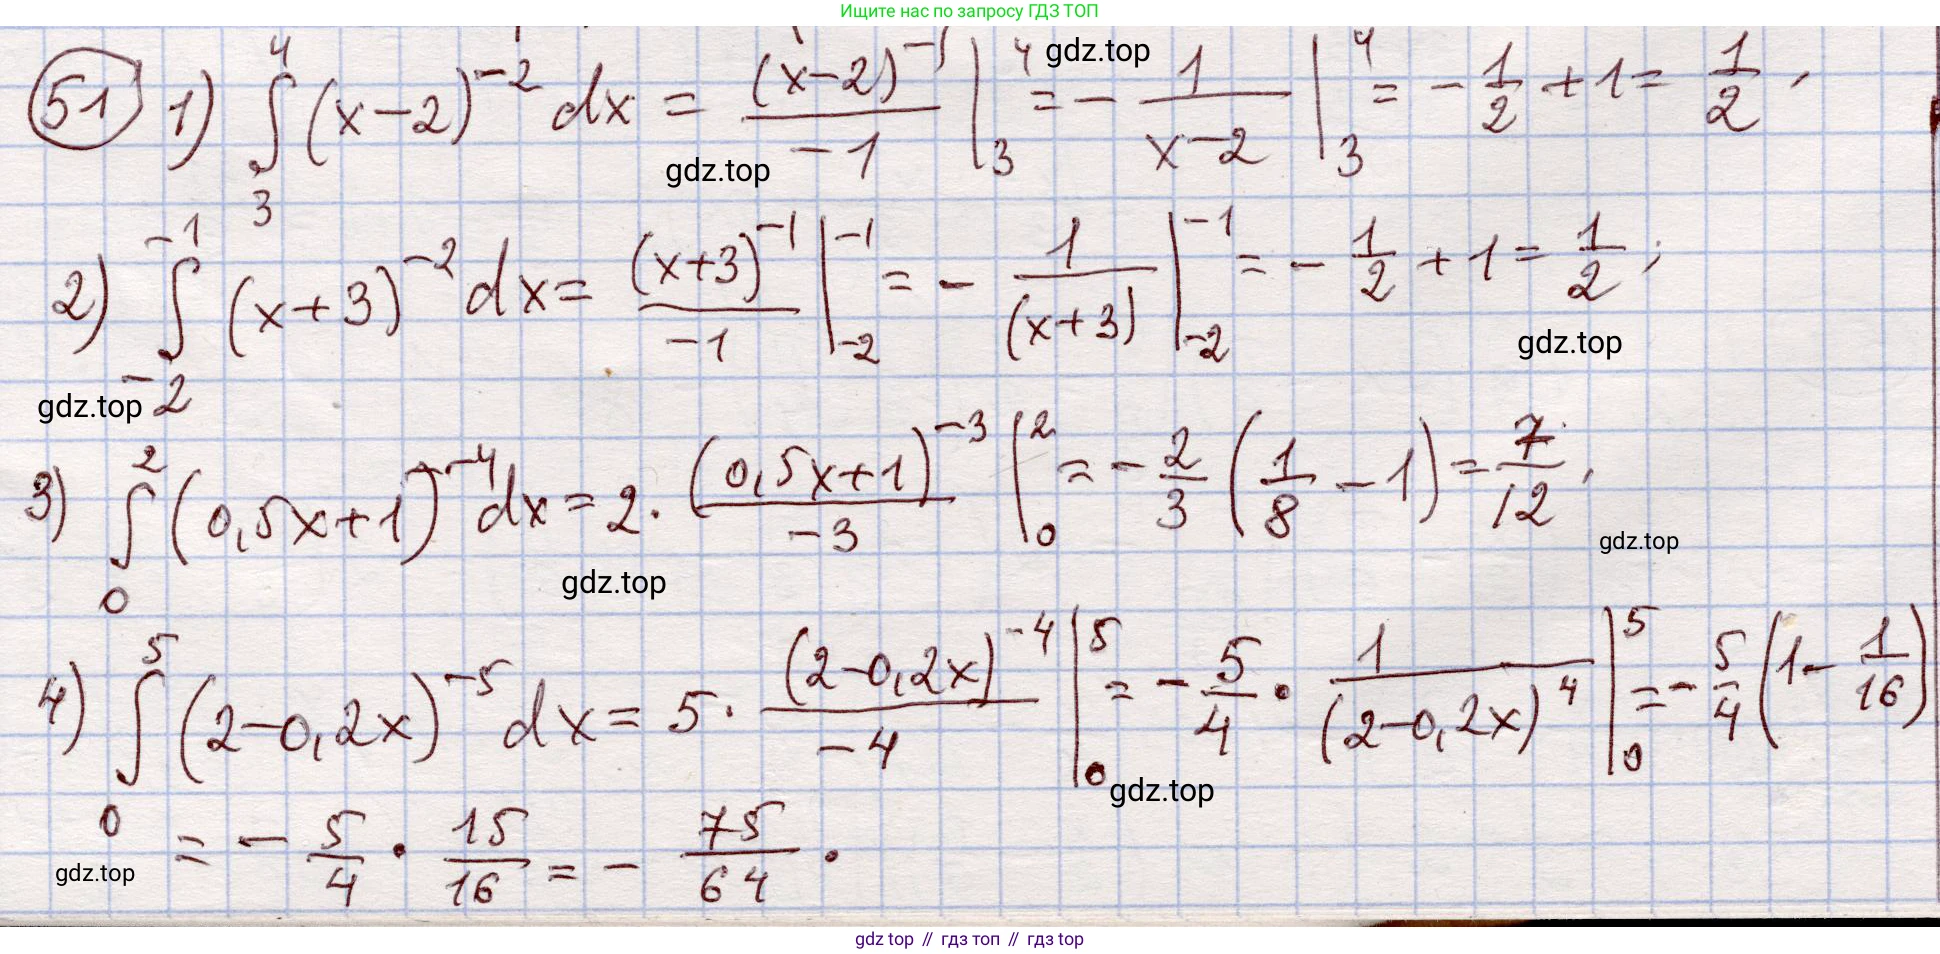 Ищите нас по запросу ГДЗ ТОП
51 1) ∫₃⁴ (x−2)⁻² dx = (x−2)⁻¹/−1 |₃⁴ = − 1/(x−2) |₃⁴ = − 1/2 + 1 = 1/2,
gdz.top
gdz.top
2) ∫₋₂⁻¹ (x+3)⁻² dx = (x+3)⁻¹/−1 |₋₂⁻¹ = − 1/(x+3) |₋₂⁻¹ = − 1/2 + 1 = 1/2;
gdz.top
gdz.top
3) ∫₀² (0,5x+1)⁻⁴ dx = 2 · (0,5x+1)⁻³/−3 |₀² = − 2/3 (1/8 − 1) = 7/12,
gdz.top
gdz.top
4) ∫₀⁵ (2−0,2x)⁻⁵ dx = 5 · (2−0,2x)⁻⁴/−4 |₀⁵ = − 5/4 · 1/(2−0,2x)⁴ |₀⁵ = − 5/4 (1 − 1/16)
gdz.top
= − 5/4 · 15/16 = − 75/64.
gdz.top
gdz top // гдз топ // gdz top